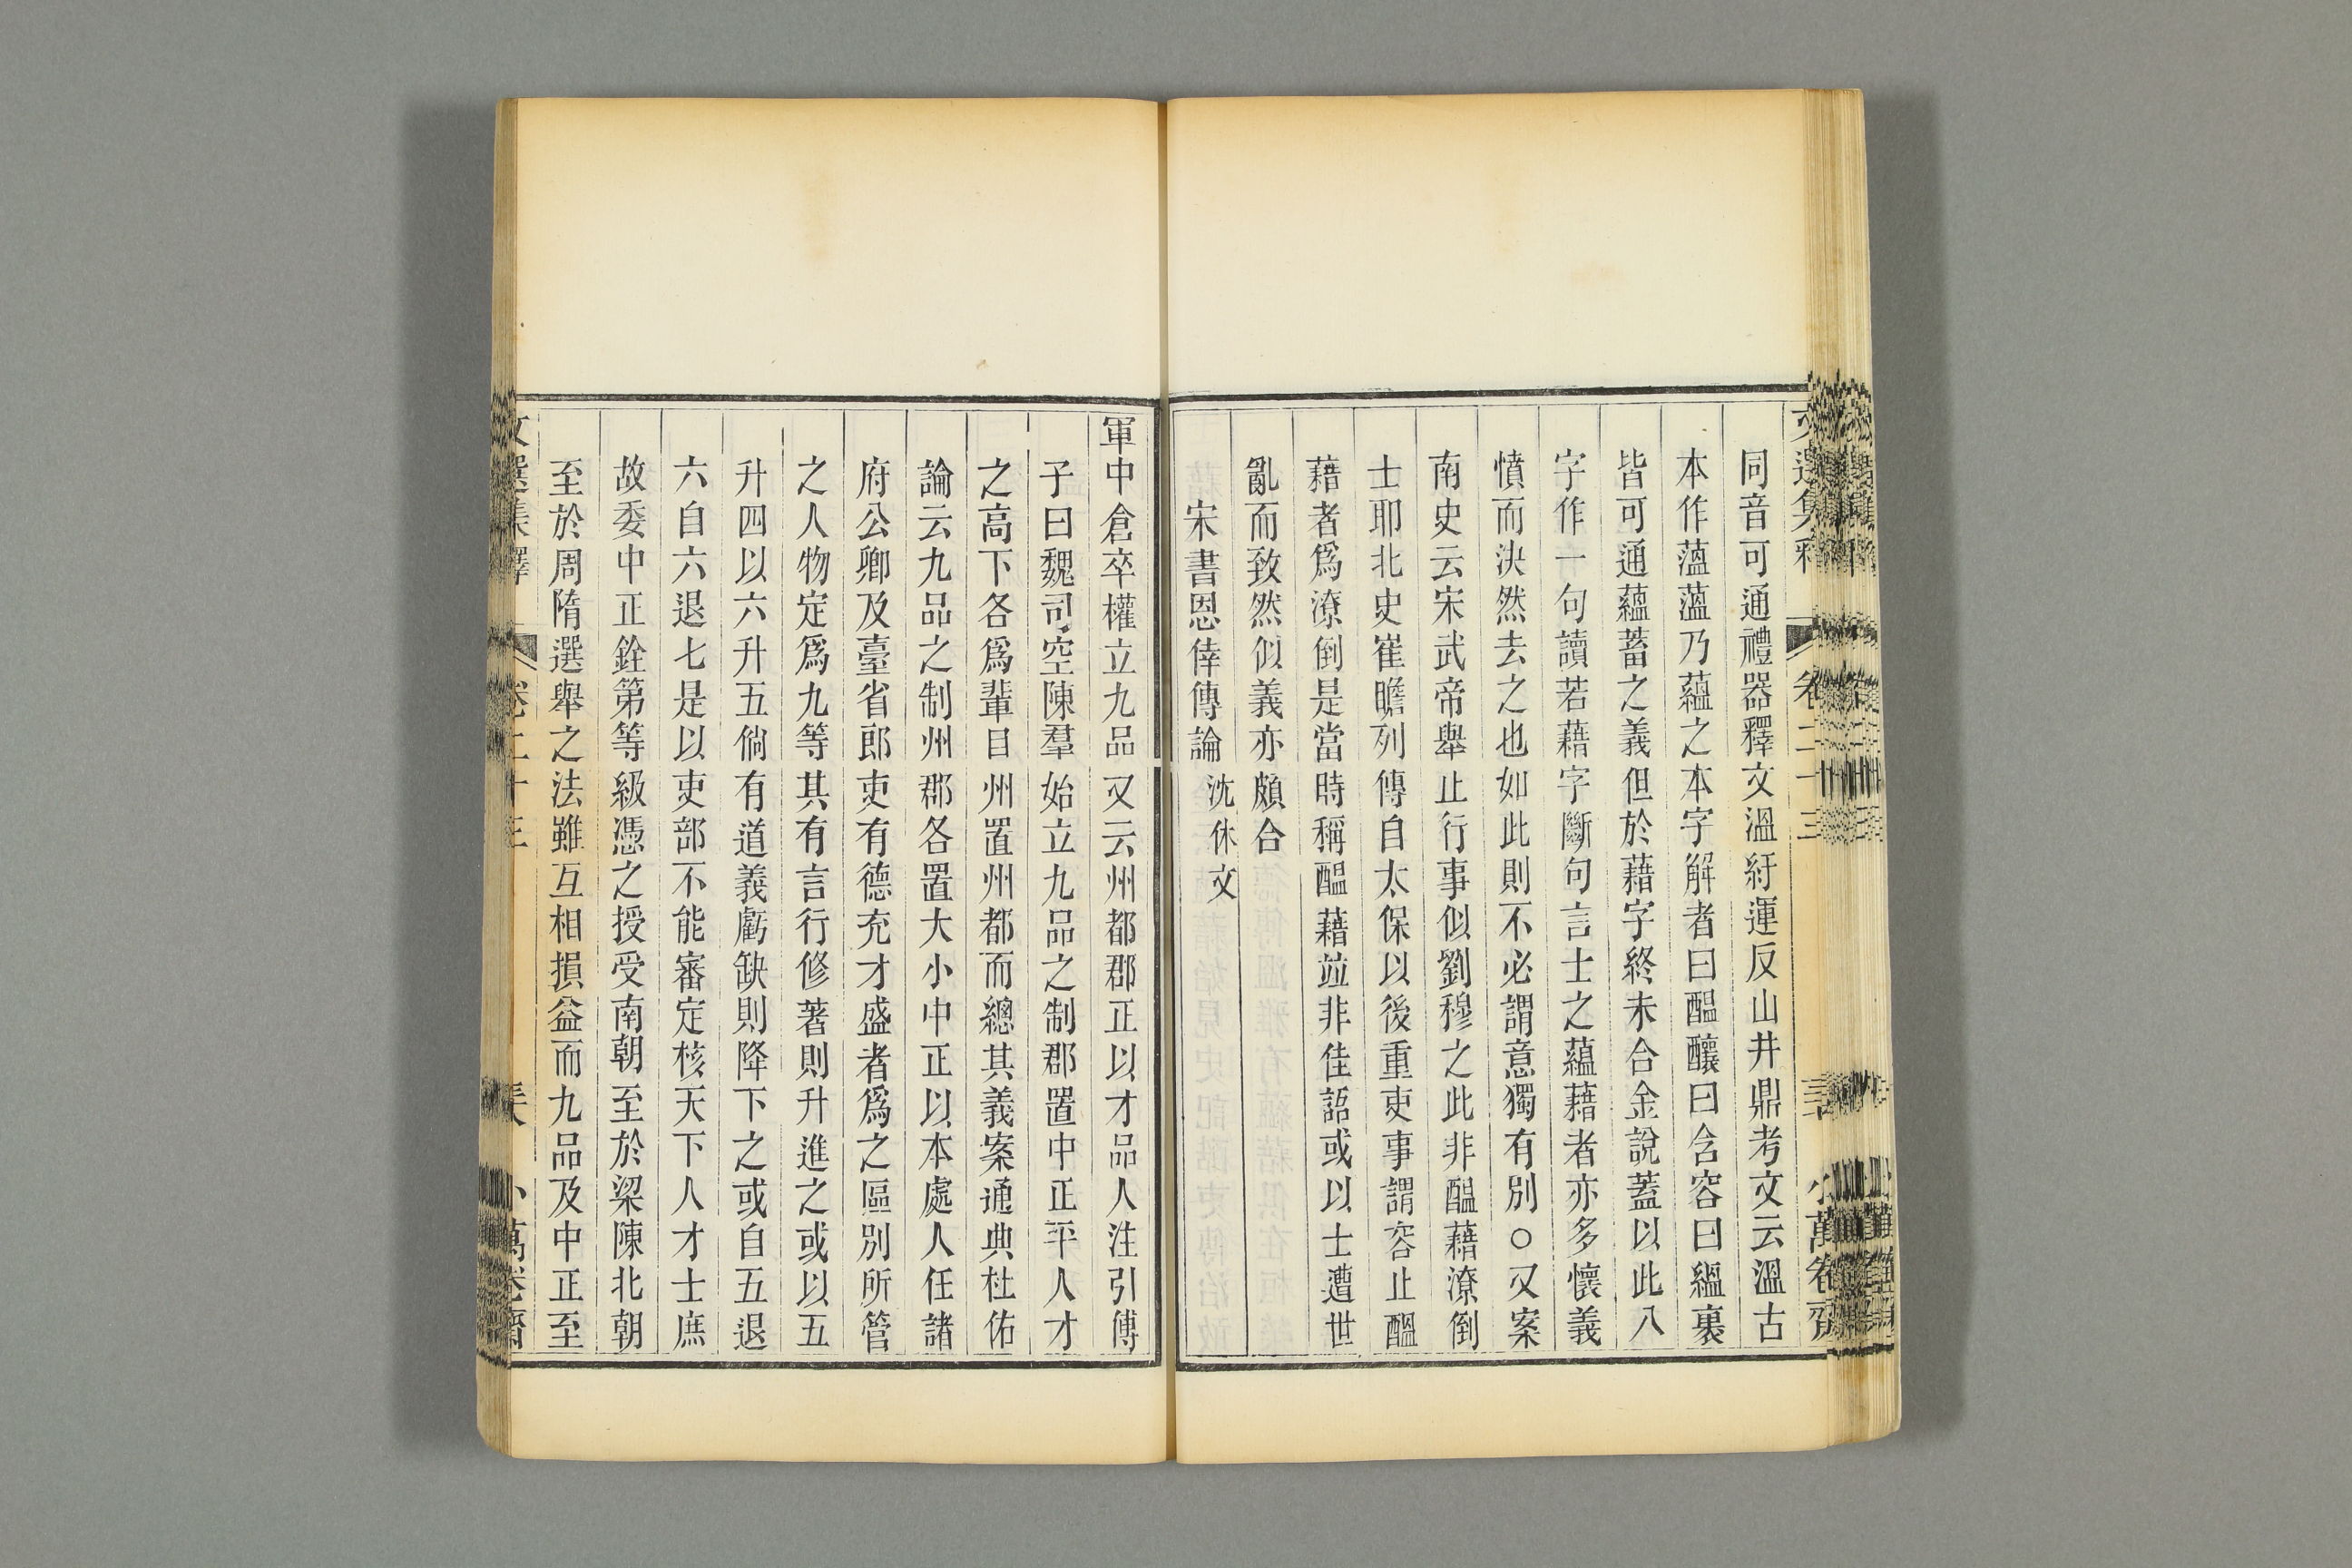 同音可通禮器釋文溫紆運反山井鼎考文云溫古
本作薀薀乃蘊之本字解者曰醞釀曰含容曰縕裏
皆可通蘊蓄之義但於藉字終未合金說蓋以此八
字作一句讀若藉字斷句言士之蘊藉者亦多懷義
憤而決然去之也如此則不必謂意獨有別○又案
南史云宋武帝舉止行事似劉穆之此非醞藉潦倒
士耶北史崔瞻列傳自太保以後重吏事謂容止醞
藉者爲潦倒是當時稱醞藉竝非佳語或以士遭世
亂而致然似義亦頗合
宋書恩倖傳論 沈休文
軍中倉卒權立九品又云州都郡正以才品人注引傅
子曰魏司空陳羣始立九品之制郡置中正平人才
之高下各爲輩目州置州都而總其義案通典杜佑
論云九品之制州郡各置大小中正以本處人任諸
府公卿及臺省郎吏有德充才盛者爲之區別所管
之人物定爲九等其有言行修著則升進之或以五
升四以六升五倘有道義虧缺則降下之或自五退
六自六退七是以吏部不能審定核天下人才士庶
故委中正銓第等級憑之授受南朝至於梁陳北朝
至於周隋選舉之法雖互相損益而九品及中正至
文選集釋 卷二十三 小萬卷齋